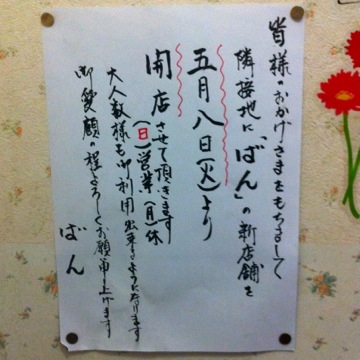 皆様のおかげさまをもちまして
隣接地に「ばん」の新店舗を
五月八日(火)より
開店させて頂きます
(日)営業(月)休
大人数様も御利用出来るようになります
御愛顧の程よろしくお願い申し上げます
ばん